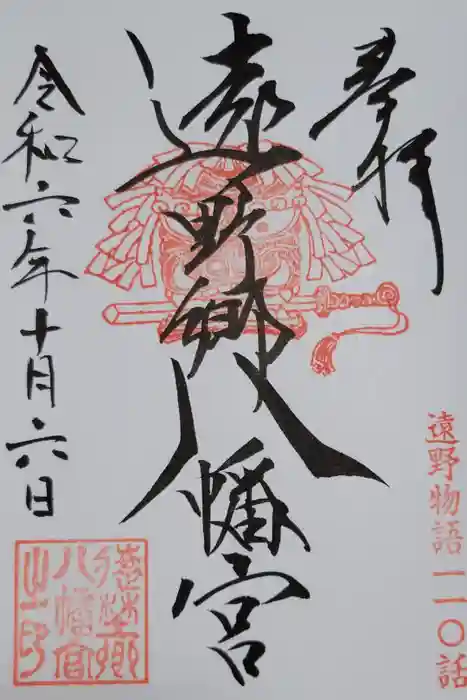 奉拝
遠野郷八幡宮
令和六年十月六日
遠野物語一一〇話
遠野郷
八幡宮
之印